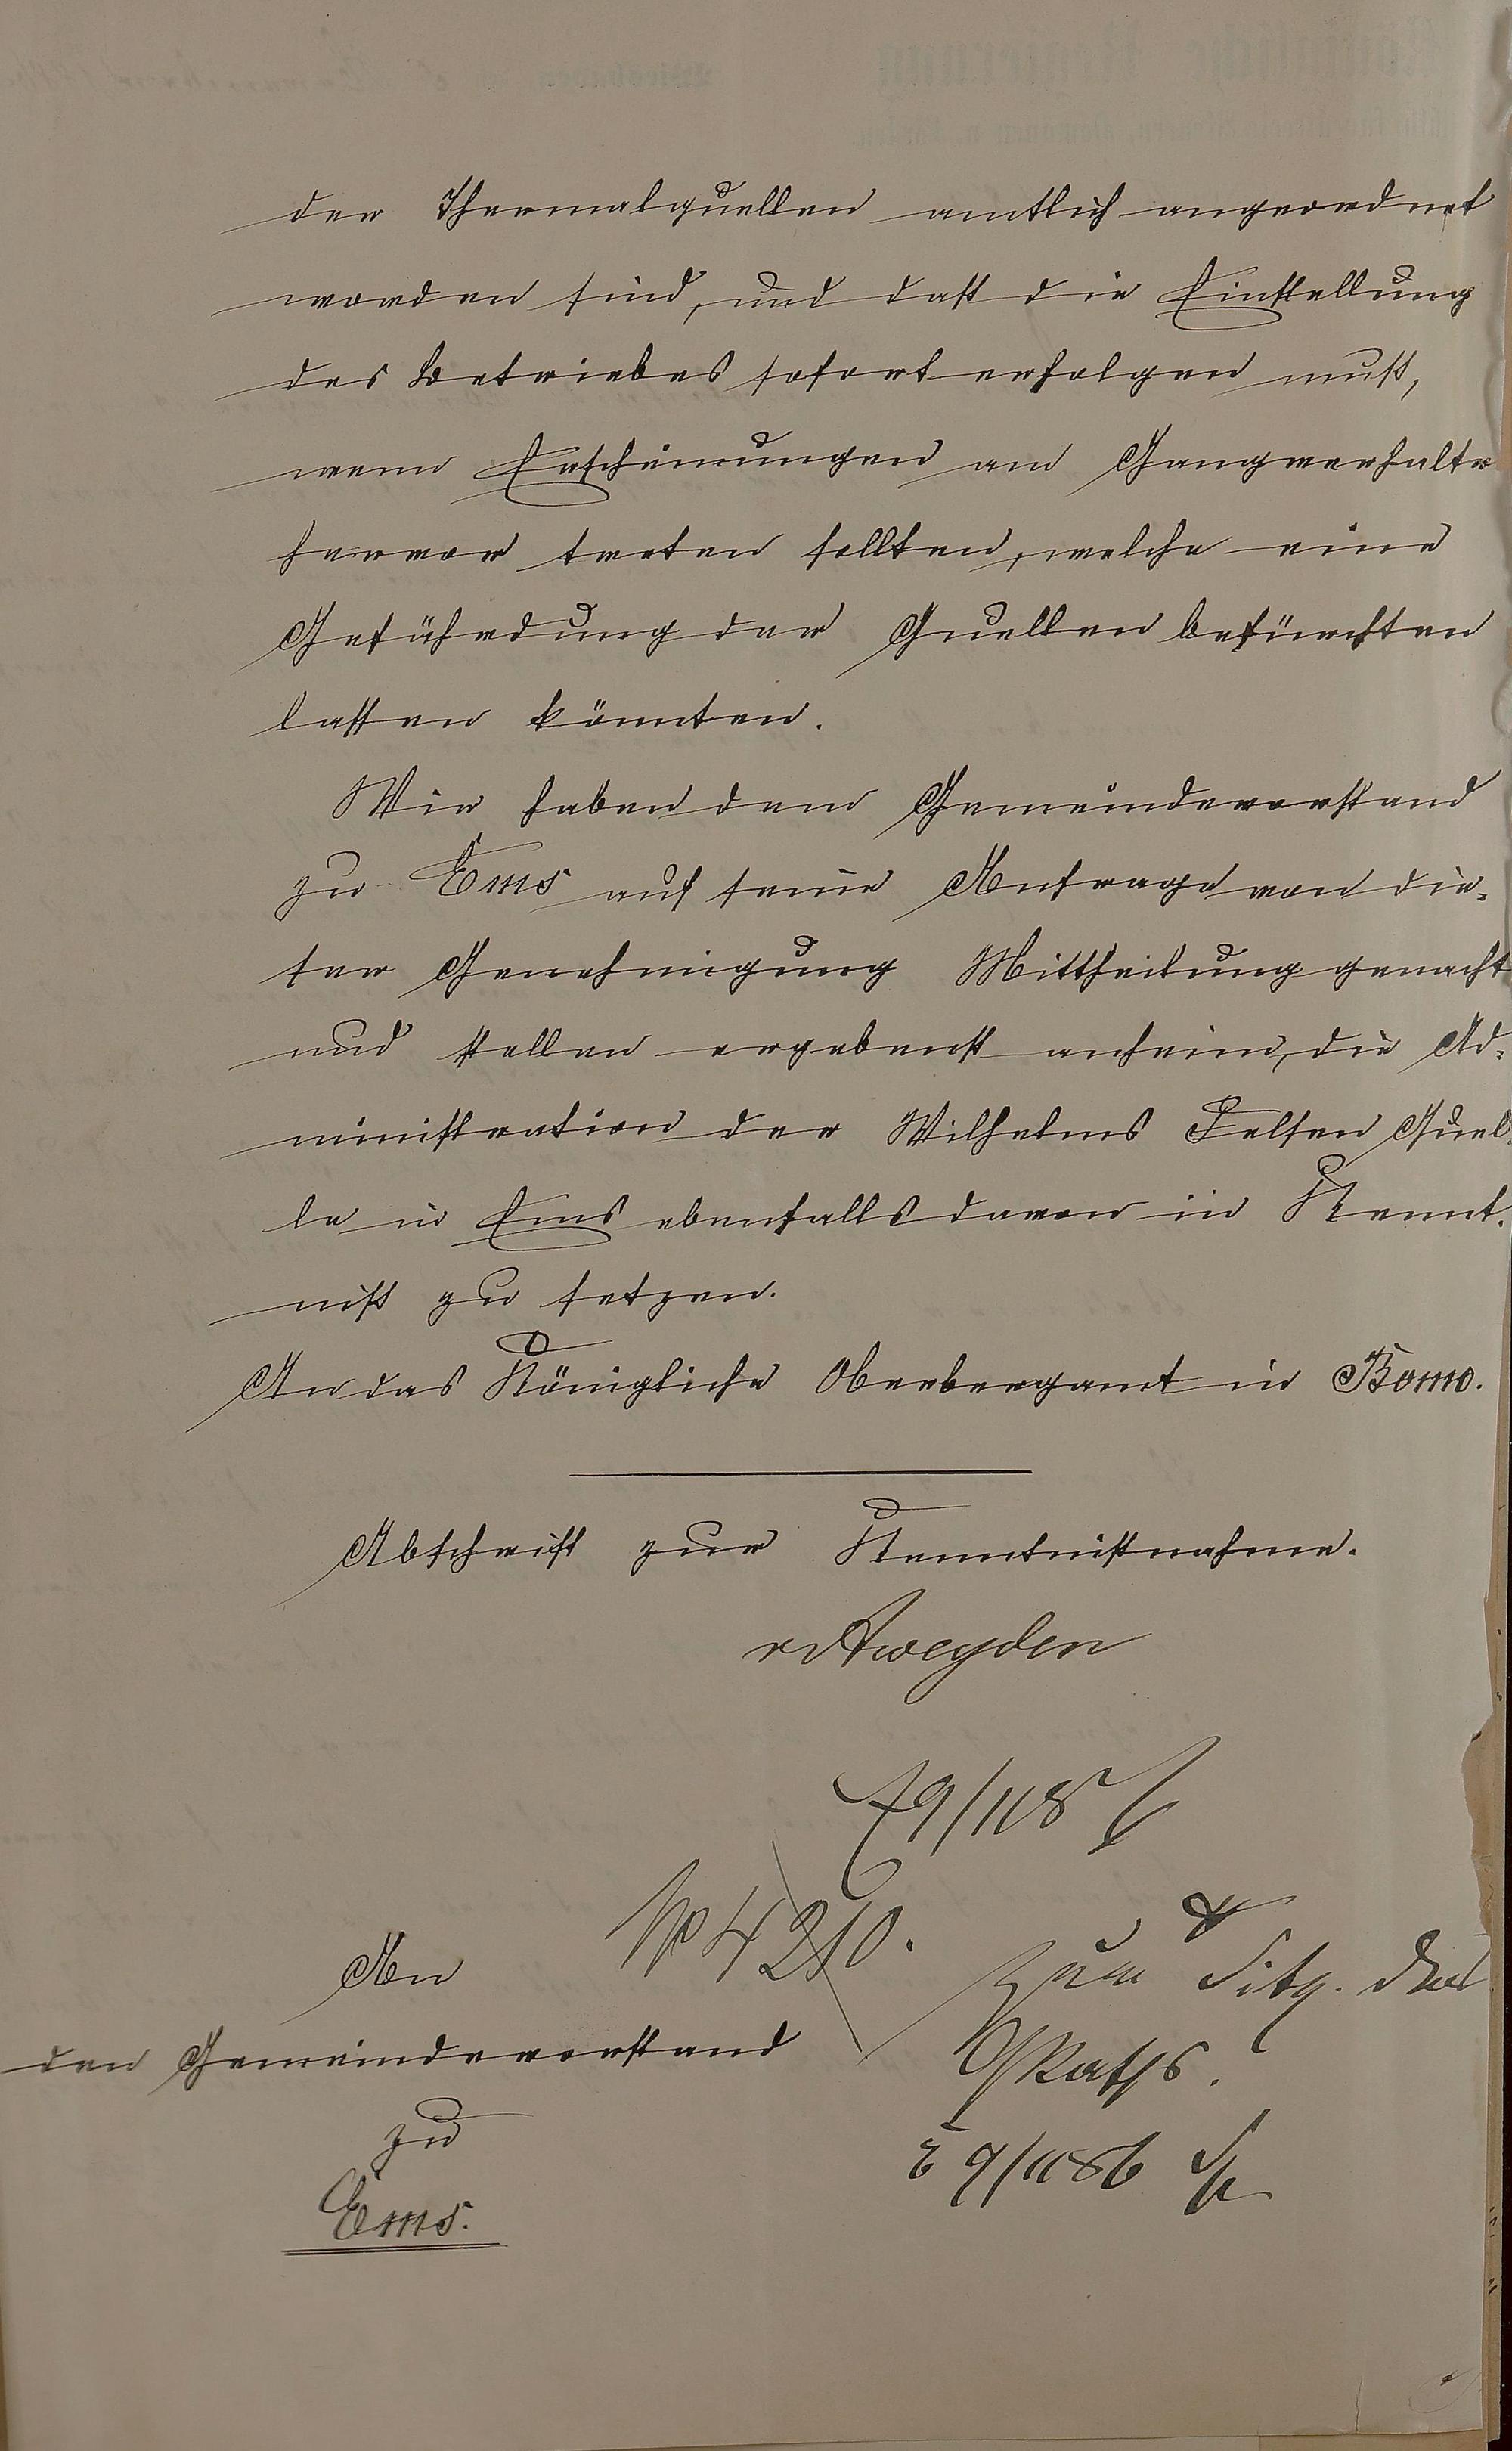 der Thermalquellen amtlich angeordnet
worden sind, und daß die Einstellung
des Betriebes sofort erfolgen muß,
wenn Erscheinungen am Gangverhalte
hervor treten sollten, welche eine
Gefährdung der Quellen befürchten
lassen könnten.
Wir haben dem Gemeindevorstand
zu Ems auf seine Anfrage von die-
ser Genehmigung Mittheilung gemacht
und stellen ergebenst anheim, die Ad-
ministration der Wilhelms Felsen Quel-
le in Ems ebenfalls davon in Kennt-
niß zu setzen.
An das Königliche Oberbergamt in Bonn.
Abschrift zur Kenntnißnahme.
9/11 86
No 4210.
An
den Gemeindevorstand
zu
Ems.
Zur Sitzg. des
GRaths.
E 9/11 86